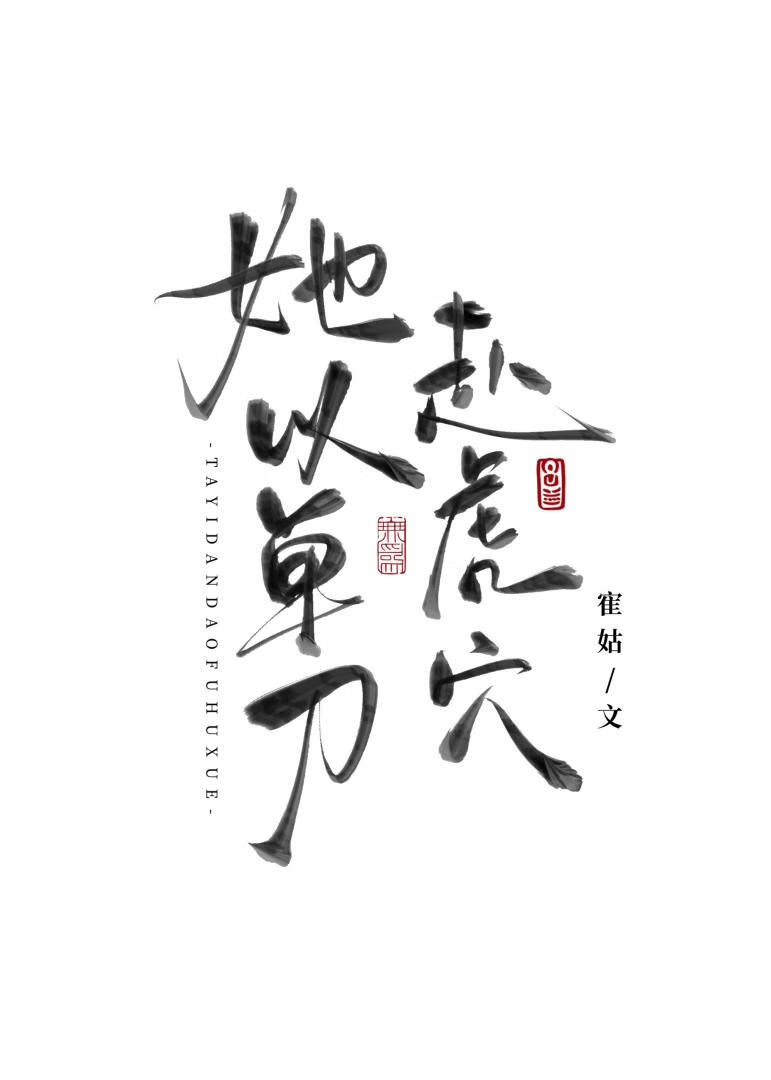 她以单刀
赴虎穴
-TAYIDANDAOFUHUXUE-
寉姑/文